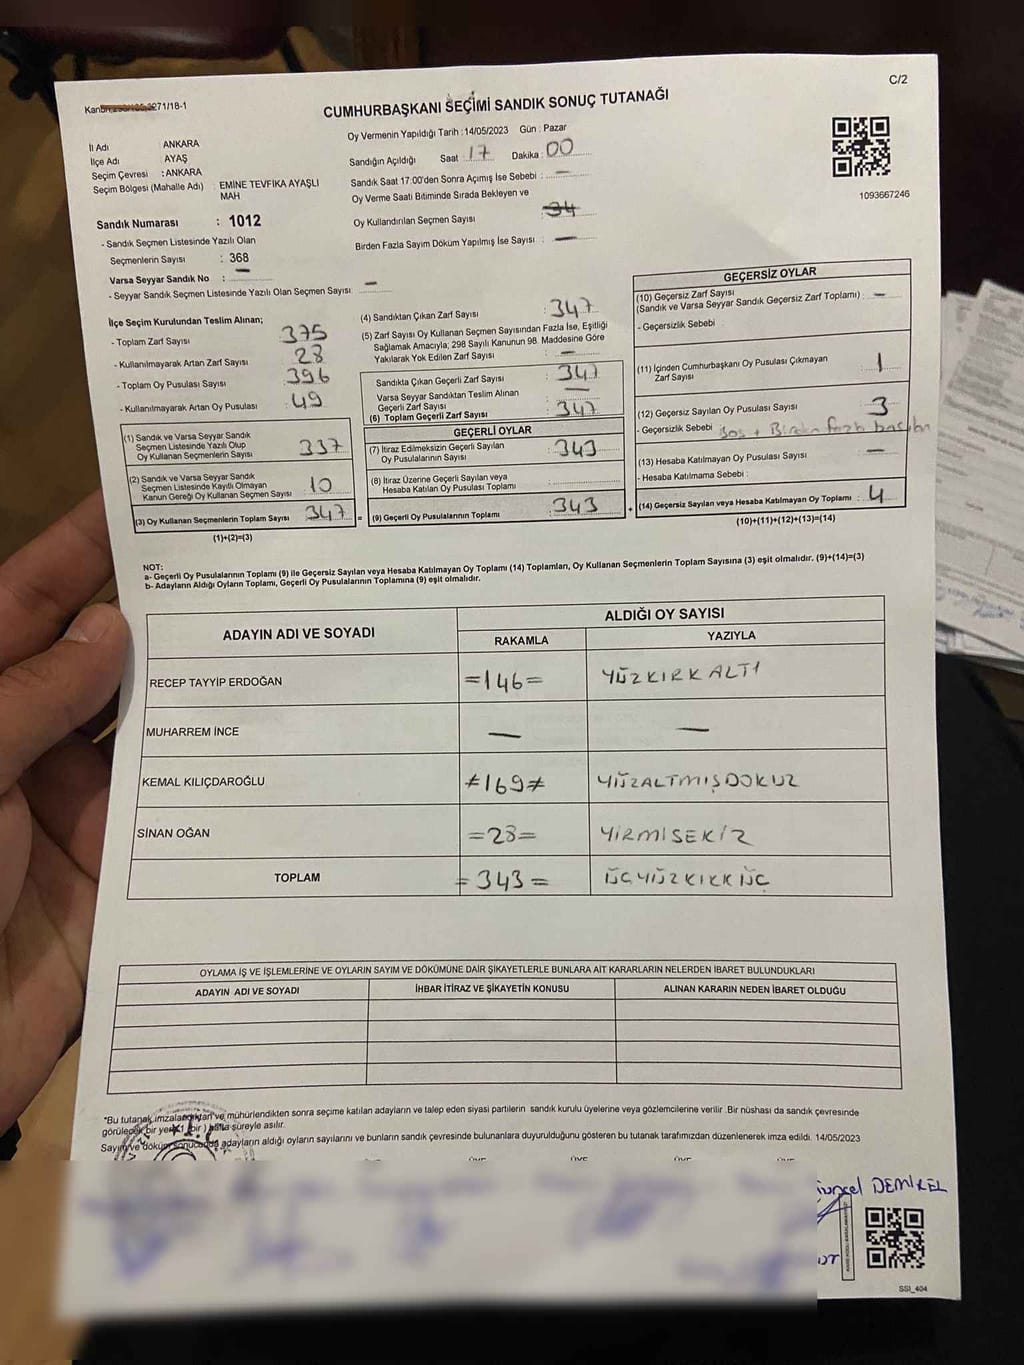 C/2
271/18-1
CUMHURBAŞKANI SEÇİMİ SANDIK SONUÇ TUTANAĞI
İl Adı : ANKARA
İlçe Adı : AYAŞ
Seçim Çevresi : ANKARA
Seçim Bölgesi (Mahalle Adı) : EMİNE TEVFİKA AYAŞLI
MAH
Sandık Numarası : 1012
- Sandık Seçmen Listesinde Yazılı Olan
Seçmenlerin Sayısı : 368
Varsa Seyyar Sandık No : —
- Seyyar Sandık Seçmen Listesinde Yazılı Olan Seçmen Sayısı : —
Oy Vermenin Yapıldığı Tarih : 14/05/2023 Gün : Pazar
Sandığın Açıldığı Saat : 17 Dakika : 00
Sandık Saat 17:00'den Sonra Açımış İse Sebebi : —
Oy Verme Saati Bitiminde Sırada Bekleyen ve
Oy Kullandırılan Seçmen Sayısı : 34
Birden Fazla Sayım Döküm Yapılmış İse Sayısı : —
1093667246
İlçe Seçim Kurulundan Teslim Alınan;
- Toplam Zarf Sayısı : 375
- Kullanılmayarak Artan Zarf Sayısı : 28
- Toplam Oy Pusulası Sayısı : 396
- Kullanılmayarak Artan Oy Pusulası : 49
(1) Sandık ve Varsa Seyyar Sandık
Seçmen Listesinde Yazılı Olup
Oy Kullanan Seçmenlerin Sayısı : 337
(2) Sandık ve Varsa Seyyar Sandık
Seçmen Listesinde Kayıtlı Olmayan
Kanun Gereği Oy Kullanan Seçmen Sayısı : 10
(3) Oy Kullanan Seçmenlerin Toplam Sayısı : 347 =
(1)+(2)=(3)
(4) Sandıktan Çıkan Zarf Sayısı : 347
(5) Zarf Sayısı Oy Kullanan Seçmen Sayısından Fazla İse, Eşitliği
Sağlamak Amacıyla; 298 Sayılı Kanunun 98. Maddesine Göre
Yakılarak Yok Edilen Zarf Sayısı : —
Sandıkta Çıkan Geçerli Zarf Sayısı : 347
Varsa Seyyar Sandıktan Teslim Alınan
Geçerli Zarf Sayısı : —
(6) Toplam Geçerli Zarf Sayısı : 347
GEÇERLİ OYLAR
(7) İtiraz Edilmeksizin Geçerli Sayılan
Oy Pusulalarının Sayısı : 343
(8) İtiraz Üzerine Geçerli Sayılan veya
Hesaba Katılan Oy Pusulası Toplamı :
(9) Geçerli Oy Pusulalarının Toplamı : 343 +
GEÇERSİZ OYLAR
(10) Geçersiz Zarf Sayısı
(Sandık ve Varsa Seyyar Sandık Geçersiz Zarf Toplamı) : —
- Geçersizlik Sebebi :
(11) İçinden Cumhurbaşkanı Oy Pusulası Çıkmayan
Zarf Sayısı : 1
(12) Geçersiz Sayılan Oy Pusulası Sayısı : 3
- Geçersizlik Sebebi : Boş + Birden fazla basılan
(13) Hesaba Katılmayan Oy Pusulası Sayısı : —
- Hesaba Katılmama Sebebi :
(14) Geçersiz Sayılan veya Hesaba Katılmayan Oy Toplamı : 4
(10)+(11)+(12)+(13)=(14)
NOT:
a- Geçerli Oy Pusulalarının Toplamı (9) ile Geçersiz Sayılan veya Hesaba Katılmayan Oy Toplamı (14) Toplamları, Oy Kullanan Seçmenlerin Toplam Sayısına (3) eşit olmalıdır. (9)+(14)=(3)
b- Adayların Aldığı Oyların Toplamı, Geçerli Oy Pusulalarının Toplamına (9) eşit olmalıdır.
ADAYIN ADI VE SOYADI
ALDIĞI OY SAYISI
RAKAMLA YAZIYLA
RECEP TAYYİP ERDOĞAN =146= YÜZKIRKALTI
MUHARREM İNCE — —
KEMAL KILIÇDAROĞLU ≠169≠ YÜZALTMIŞDOKUZ
SİNAN OĞAN =28= YİRMİSEKİZ
TOPLAM =343= ÜÇYÜZKIRKÜÇ
OYLAMA İŞ VE İŞLEMLERİNE VE OYLARIN SAYIM VE DÖKÜMÜNE DAİR ŞİKAYETLERLE BUNLARA AİT KARARLARIN NELERDEN İBARET BULUNDUKLARI
ADAYIN ADI VE SOYADI İHBAR İTİRAZ VE ŞİKAYETİN KONUSU ALINAN KARARIN NEDEN İBARET OLDUĞU
*Bu tutanak imzalandıktan ve mühürlendikten sonra seçime katılan adayların ve talep eden siyasi partilerin sandık kurulu üyelerine veya gözlemcilerine verilir. Bir nüshası da sandık çevresinde
görülecek bir yere 1 (bir) hafta süreyle asılır.
Sayım ve döküm sonucunda adayların aldığı oyların sayılarını ve bunların sandık çevresinde bulunanlara duyurulduğunu gösteren bu tutanak tarafımızdan düzenlenerek imza edildi. 14/05/2023
DEMİREL
SSI_404